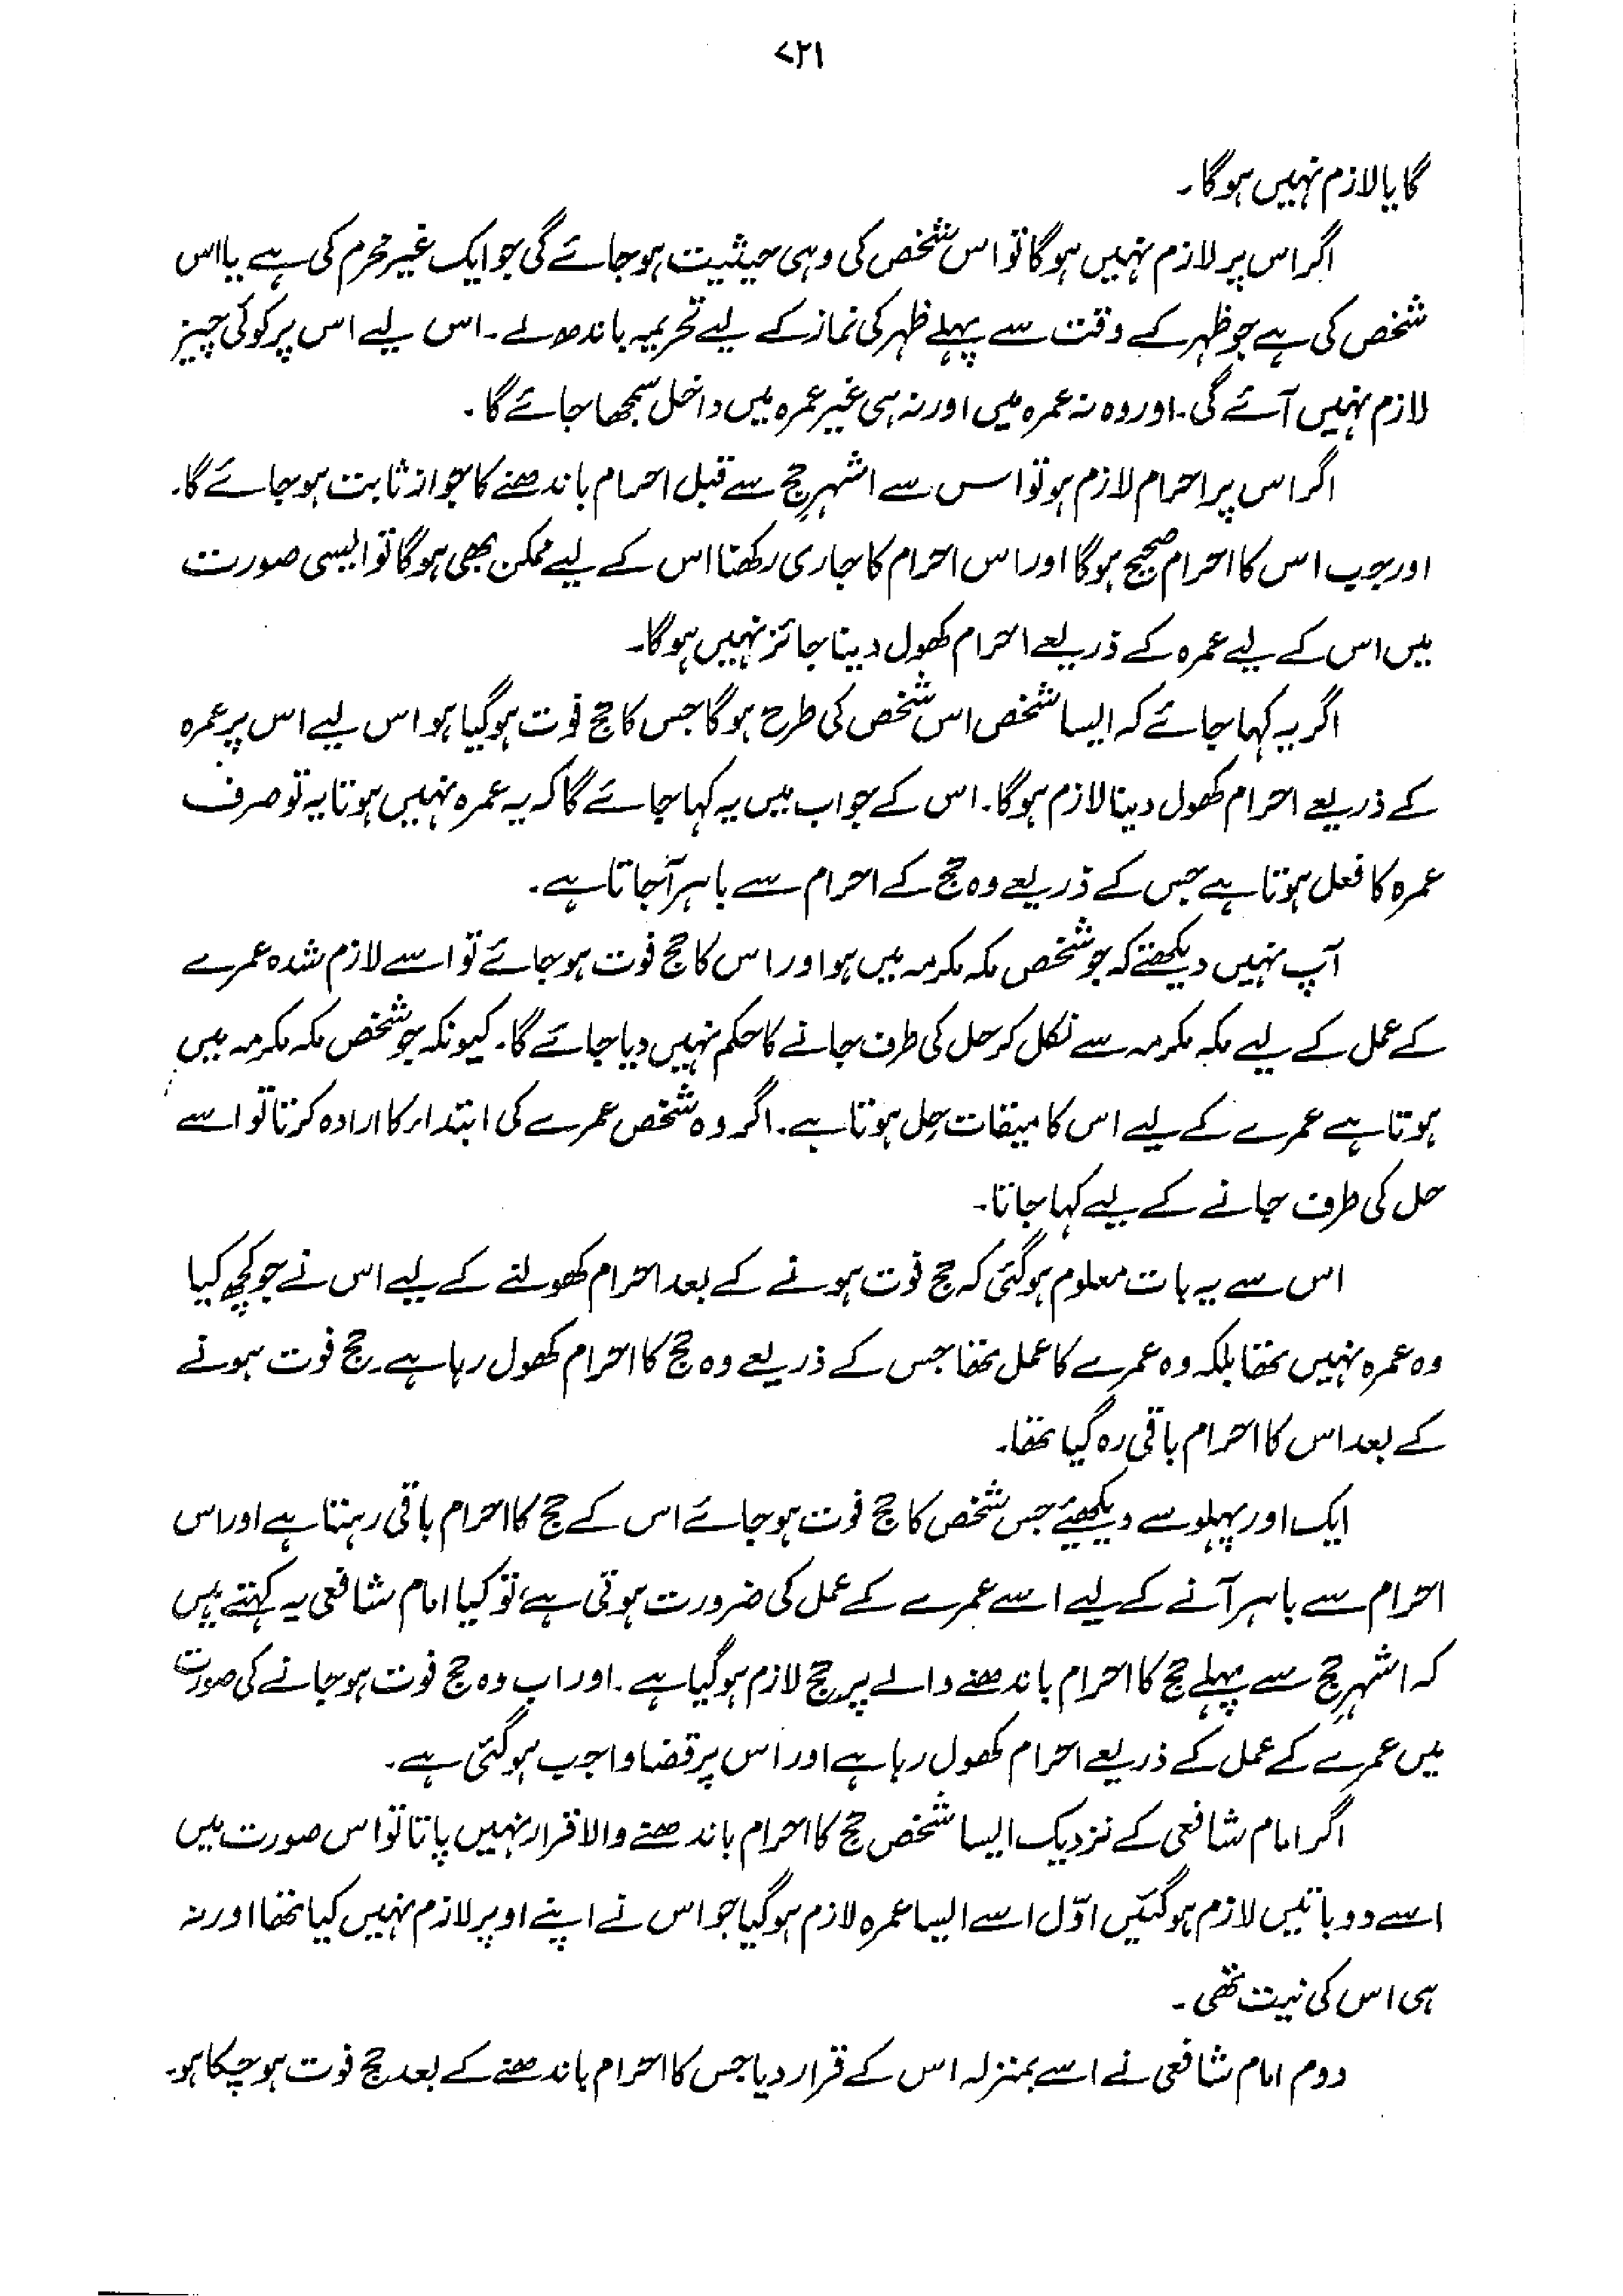 ۷۲۱
گا یا لازم نہیں ہوگا۔
اگر اس پر لازم نہیں ہوگا تو اس شخص کی وہی حیثیت ہو جائے گی جو ایک غیر محرم کی ہے یا اس
شخص کی ہے جو ظہر کے وقت سے پہلے ظہر کی نماز کے لیے تحریمہ باندھ لے۔ اس لیے اس پر کوئی چیز
لازم نہیں آئے گی۔ اور وہ نہ عمرہ میں اور نہ ہی غیر عمرہ میں داخل سمجھا جائے گا۔
اگر اس پر احرام لازم ہو تو اس سے اشہرِ حج سے قبل احرام باندھنے کا جواز ثابت ہو جائے گا۔
اور جب اس کا احرام صحیح ہوگا اور اس احرام کا جاری رکھنا اس کے لیے ممکن بھی ہوگا تو ایسی صورت
میں اس کے لیے عمرہ کے ذریعے احرام کھول دینا جائز نہیں ہوگا۔
اگر یہ کہا جائے کہ ایسا شخص اس شخص کی طرح ہوگا جس کا حج فوت ہو گیا ہو اس لیے اس پر عمرہ
کے ذریعے احرام کھول دینا لازم ہوگا۔ اس کے جواب میں یہ کہا جائے گا کہ یہ عمرہ نہیں ہوتا یہ تو صرف
عمرہ کا فعل ہوتا ہے جس کے ذریعے وہ حج کے احرام سے باہر آجاتا ہے۔
آپ نہیں دیکھتے کہ جو شخص مکہ مکرمہ میں ہو اور اس کا حج فوت ہو جائے تو اسے لازم شدہ عمرے
کے عمل کے لیے مکہ مکرمہ سے نکل کر حل کی طرف جانے کا حکم نہیں دیا جائے گا۔ کیونکہ جو شخص مکہ مکرمہ میں
ہوتا ہے عمرے کے لیے اس کا میقات حِل ہوتا ہے۔ اگر وہ شخص عمرے کی ابتداء کا ارادہ کرتا تو اسے
حل کی طرف جانے کے لیے کہا جاتا۔
اس سے یہ بات معلوم ہو گئی کہ حج فوت ہونے کے بعد احرام کھولنے کے لیے اس نے جو کچھ کیا
وہ عمرہ نہیں تھا بلکہ وہ عمرے کا عمل تھا جس کے ذریعے وہ حج کا احرام کھول رہا ہے۔ حج فوت ہونے
کے بعد اس کا احرام باقی رہ گیا تھا۔
ایک اور پہلو سے دیکھیئے جس شخص کا حج فوت ہو جائے اس کے حج کا احرام باقی رہتا ہے اور اس
احرام سے باہر آنے کے لیے اسے عمرے کے عمل کی ضرورت ہوتی ہے، تو کیا امام شافعی یہ کہتے ہیں
کہ اشہرِ حج سے پہلے حج کا احرام باندھنے والے پر حج لازم ہو گیا ہے۔ اور اب وہ حج فوت ہو جانے کی صورت
میں عمرے کے عمل کے ذریعے احرام کھول رہا ہے اور اس پر قضا واجب ہو گئی ہے۔
اگر امام شافعی کے نزدیک ایسا شخص حج کا احرام باندھنے والا قرار نہیں پاتا تو اس صورت میں
اسے دو باتیں لازم ہو گئیں اوّل اسے ایسا عمرہ لازم ہو گیا جو اس نے اپنے اوپر لازم نہیں کیا تھا اور نہ
ہی اس کی نیت تھی۔
دوم امام شافعی نے اسے بمنزلہ اس کے قرار دیا جس کا احرام باندھنے کے بعد حج فوت ہو چکا ہو۔